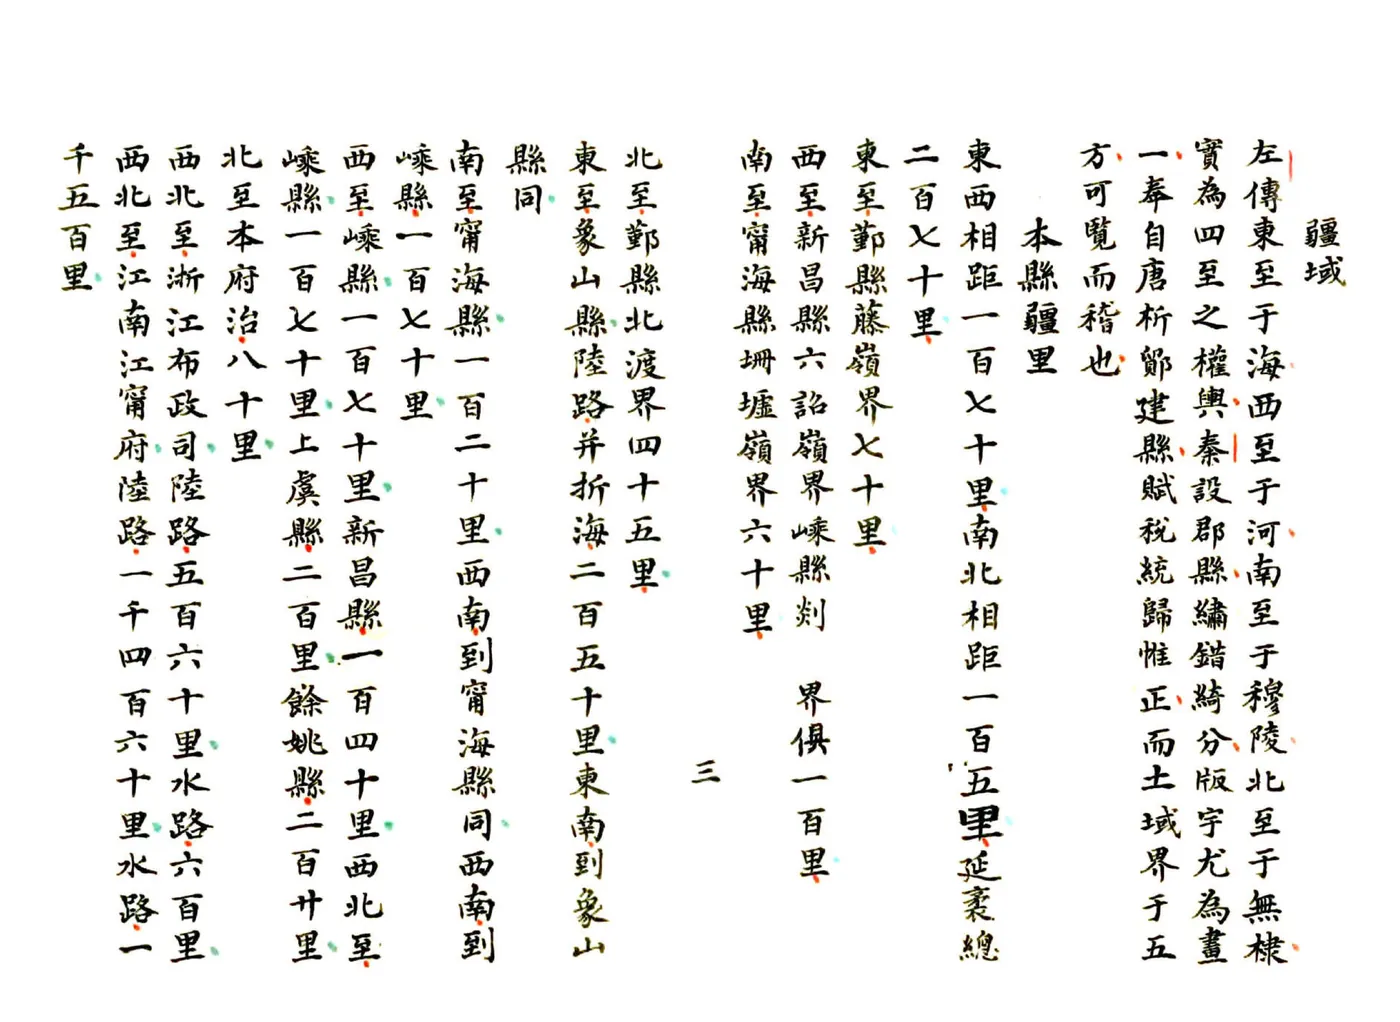 疆域
左傳東至于海西至于河南至于穆陵北至于無棣
實為四至之權輿秦設郡縣繡錯綺分版宇尤為畫
一奉自唐析鄮建縣賦稅統歸惟正而土域界于五
方可覽而稽也
本縣疆里
東西相距一百七十里南北相距一百五里延袤總
二百七十里
東至鄞縣藤嶺界七十里
西至新昌縣六詔嶺界嵊縣剡 界俱一百里
南至甯海縣柵墟嶺界六十里
三
北至鄞縣北渡界四十五里
東至象山縣陸路并折海二百五十里東南到象山
縣同
南至甯海縣一百二十里西南到甯海縣同西南到
嵊縣一百七十里
西至嵊縣一百七十里新昌縣一百四十里西北至
嵊縣一百七十里上虞縣二百里餘姚縣二百廿里
北至本府治八十里
西北至浙江布政司陸路五百六十里水路六百里
西北至江南江甯府陸路一千四百六十里水路一
千五百里